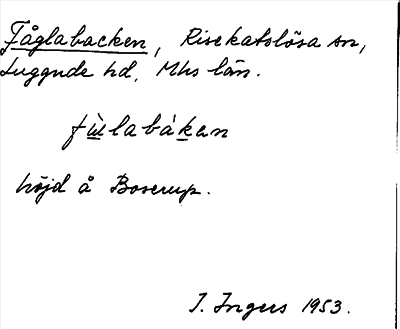 Fåglabacken, Risekatslösa sn,
Luggude hd. Mhs län.
fùlabákan
höjd å Boserup.
I. Ingers 1953.